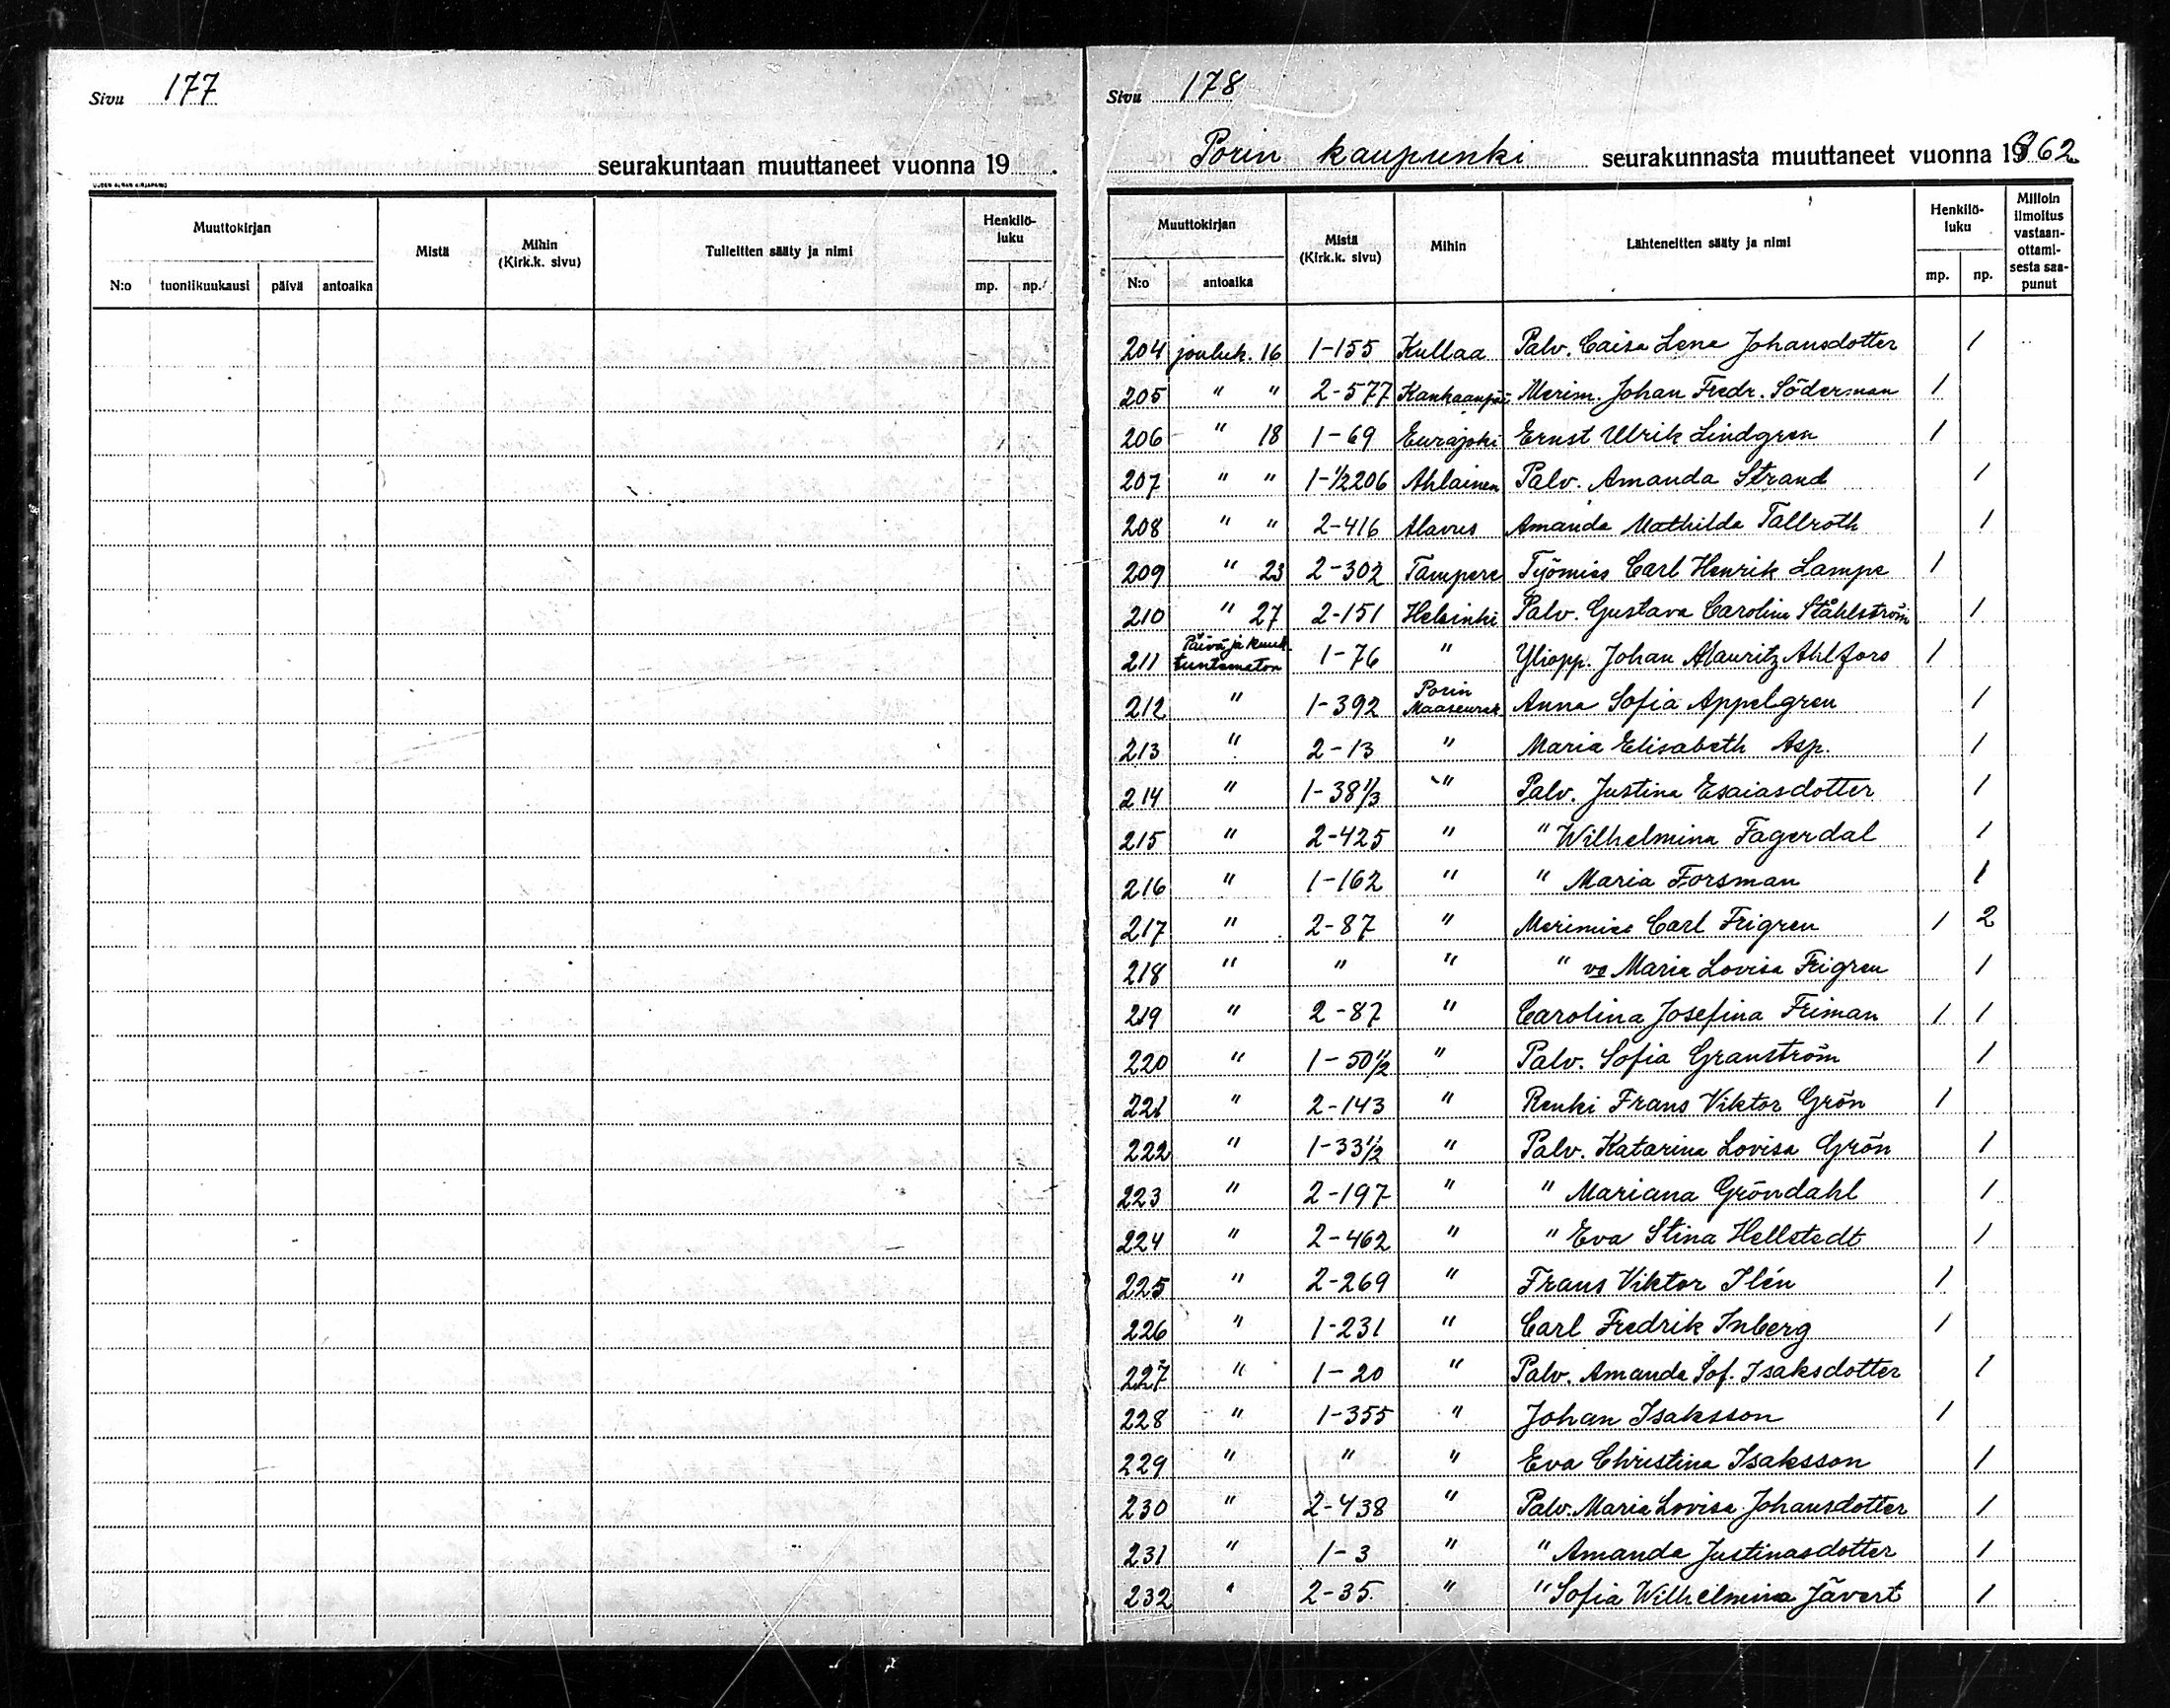 Sivu 177
seurakuntaan muuttaneet vuonna 19 .
UUDEN AURAN KIRJAPAINO
Muuttokirjan
N:o tuontikuukausi päivä antoaika
Mistä
Mihin (Kirk.k. sivu)
Tulleitten sääty ja nimi
Henkilö-luku
mp. np.
Sivu 178
Porin kaupunki seurakunnasta muuttaneet vuonna 1862.
Muuttokirjan
N:o antoaika
Mistä (Kirk.k. sivu)
Mihin
Lähteneitten sääty ja nimi
Henkilö-luku
mp. np.
Milloin ilmoitus vastaan-ottami-sesta saa-punut
204 jouluk. 16 1-155 Kullaa Palv. Caisa Lena Johansdotter 1
205 " " 2-577 Kankaanpää Merim. Johan Fredr. Söderman 1
206 " 18 1-69 Eurajoki Ernst Ulrik Lindgren 1
207 " " 1-1/2206 Ahlainen Palv. Amanda Strand 1
208 " " 2-416 Alavus Amanda Mathilda Tallroth 1
209 " 23 2-302 Tampere Työmies Carl Henrik Lampe 1
210 " 27 2-151 Helsinki Palv. Gustava Carolina Ståhlström 1
211 Päivä ja kuuk. tuntematon 1-76 " Yliopp. Johan Mauritz Ahlfors 1
212 " 1-392 Porin Maaseurak. Anna Sofia Appelgren 1
213 " 2-13 " Maria Elisabeth Asp. 1
214 " 1-38 1/3 " Palv. Justina Esaiasdotter 1
215 " 2-425 " " Wilhelmina Fagerdal 1
216 " 1-162 " " Maria Forsman 1
217 " 2-87 " Merimies Carl Frigren 1 2
218 " " " " vo Maria Lovisa Frigren 1
219 " 2-87 " Carolina Josefina Friman 1 1
220 " 1-50 1/2 " Palv. Sofia Granström 1
221 " 2-143 " Renki Frans Viktor Grön 1
222 " 1-33 1/2 " Palv. Katarina Lovisa Grön 1
223 " 2-197 " " Mariana Gröndahl 1
224 " 2-462 " " Eva Stina Hellstedt 1
225 " 2-269 " Frans Viktor Ilén 1
226 " 1-231 " Carl Fredrik Inberg 1
227 " 1-20 " Palv. Amanda Sof. Isaksdotter 1
228 " 1-355 " Johan Isaksson 1
229 " " " Eva Christina Isaksson 1
230 " 2-438 " Palv. Maria Lovisa Johansdotter 1
231 " 1-3 " " Amanda Justinasdotter 1
232 " 2-35. " " Sofia Wilhelmina Jävert 1